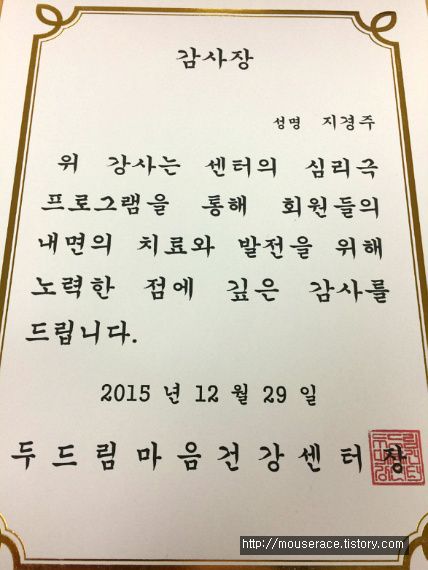 감사장
성명 지경주
위 강사는 센터의 심리극
프로그램을 통해 회원들의
내면의 치료와 발전을 위해
노력한 점에 깊은 감사를
드립니다.
2015 년 12 월 29 일
두드림마음건강센터장
http://mouserace.tistory.com